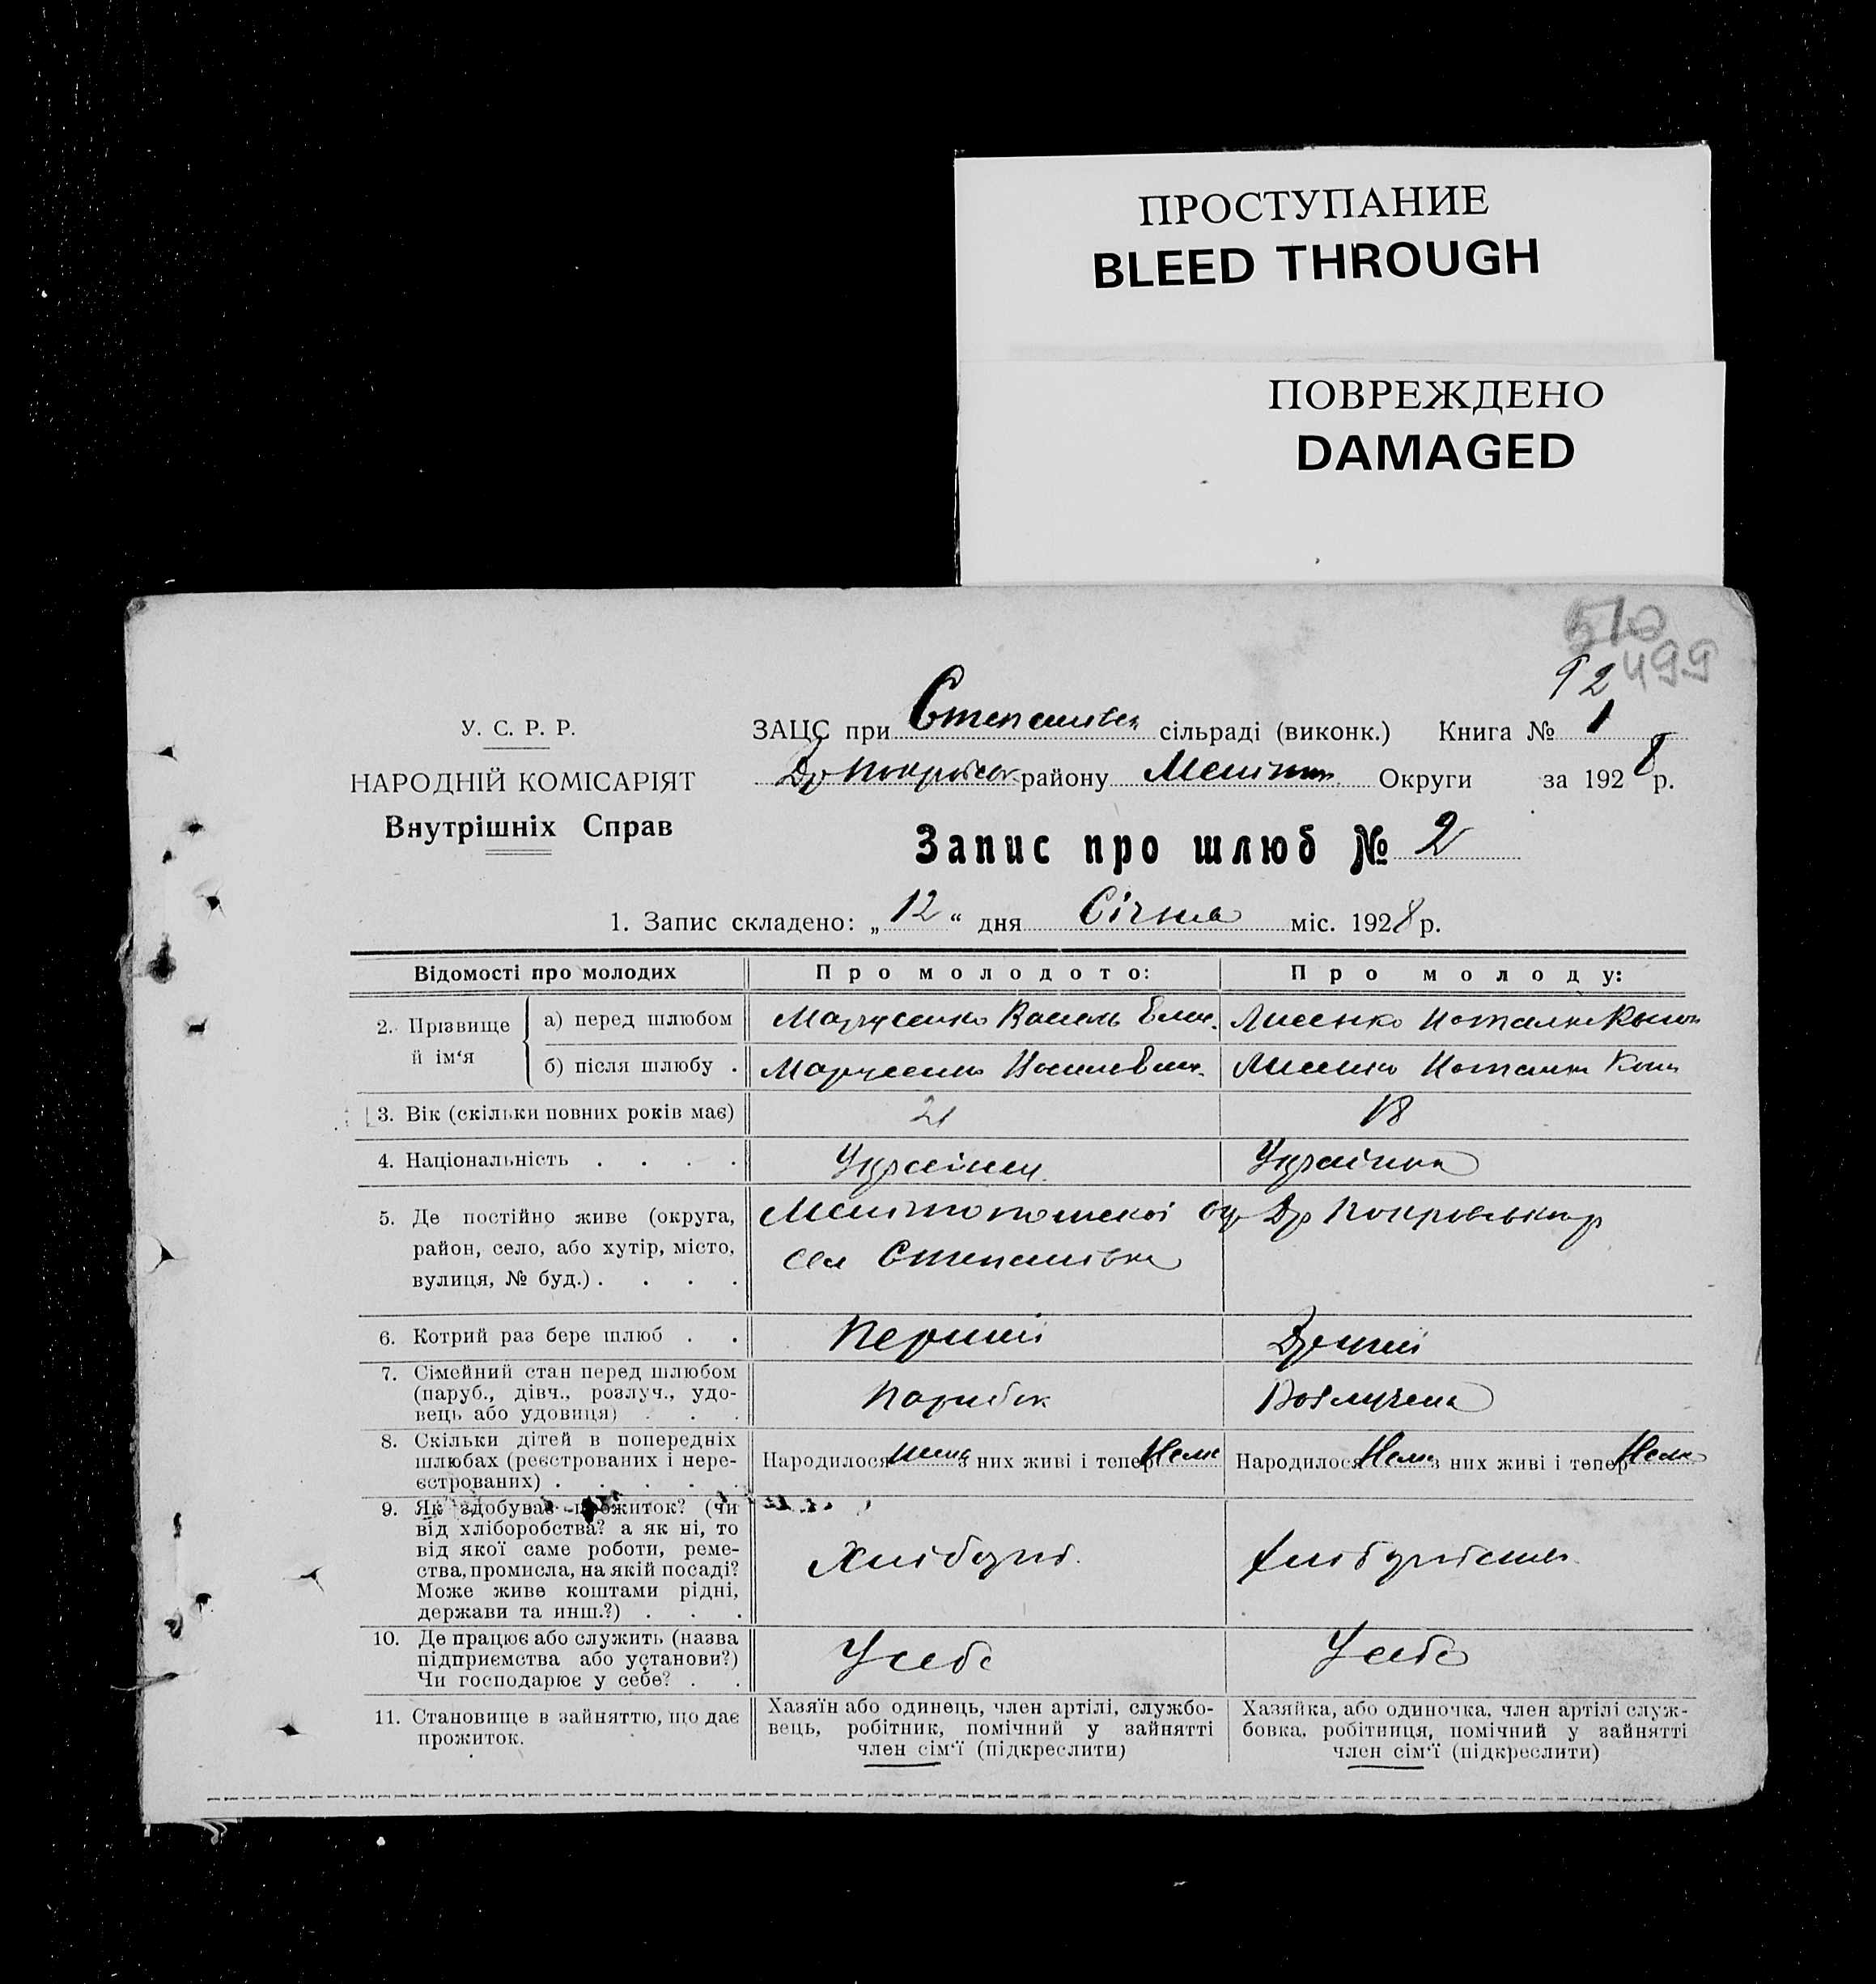 ПРОСТУПАНИЕ
BLEED THROUGH
ПОВРЕЖДЕНО
DAMAGED
510
499
92
У. С. Р. Р.
НАРОДНІЙ КОМІСАРІЯТ
Внутрішніх Справ
ЗАЦС при Степанівск сільраді (виконк.) Книга № 1
району Меліт Округи за 1928 р.
Запис про шлюб № 2
1. Запис складено: „12“ дня Січня міс. 1928 р.
Відомості про молодих
Про молодого:
Про молоду:
2. Прізвище й ім‘я
а) перед шлюбом
Василь
Лисенко Наталія
б) після шлюбу .
Лисенко Наталія
3. Вік (скільки повних років має)
21
18
4. Національність . . . .
Українец
Українка
5. Де постійно живе (округа,
район, село, або хутір, місто,
вулиця, № буд.) . . . .
Мелітопольскої Ок
сел Степанівка
6. Котрий раз бере шлюб . .
Перший
Другий
7. Сімейний стан перед шлюбом
(паруб., дівч., розлуч., удо-
вець або удовиця) . . .
Парубок
Розлучена
8. Скільки дітей в попередніх
шлюбах (реєстрованих і нере-
єстрованих) . . . . .
Народилося нема з них живі і тепер Нема
Народилося Нема з них живі і тепер Нема
9. Як здобуває прожиток? (чи
від хліборобства? а як ні, то
від якої саме роботи, реме-
ства, промисла, на якій посаді?
Може живе коштами рідні,
держави та инш.?) . . .
Хлібороб.
10. Де працює або служить (назва
підприємства або установи?)
Чи господарює у себе? . .
У себе
У себе
11. Становище в зайняттю, що дає
прожиток.
Хазяїн або одинець, член артілі, службо-
вець, робітник, помічний у зайнятті
член сім‘ї (підкреслити)
Хазяйка, або одиночка, член артілі служ-
бовка, робітниця, помічний у зайнятті
член сім‘ї (підкреслити)